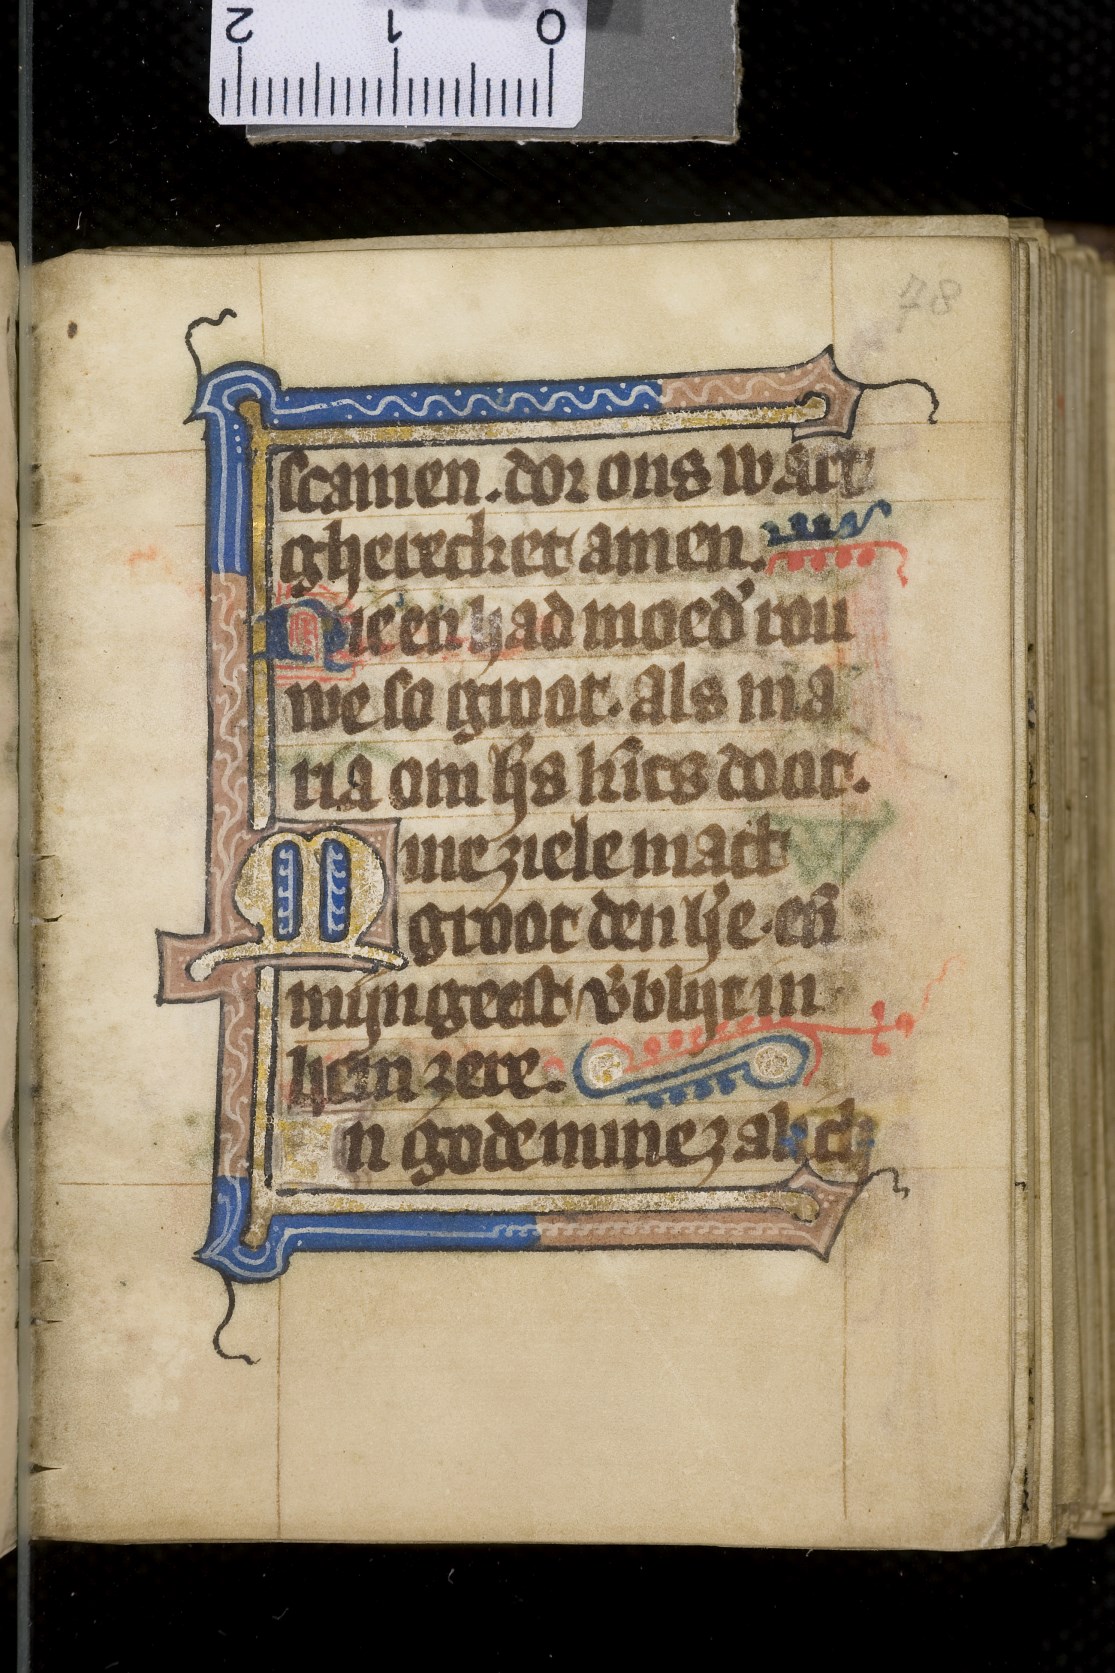 2 1 0
78
scamen. dor ons wart
gherecket amen.
Nie en had moed' rou
we so groot. als ma
ria om ih's kr̄ts doot.
Mine ziele mact
groot den h'e. en̄
mijn geest v'blijt in
hem zere.
n gode mine zalich